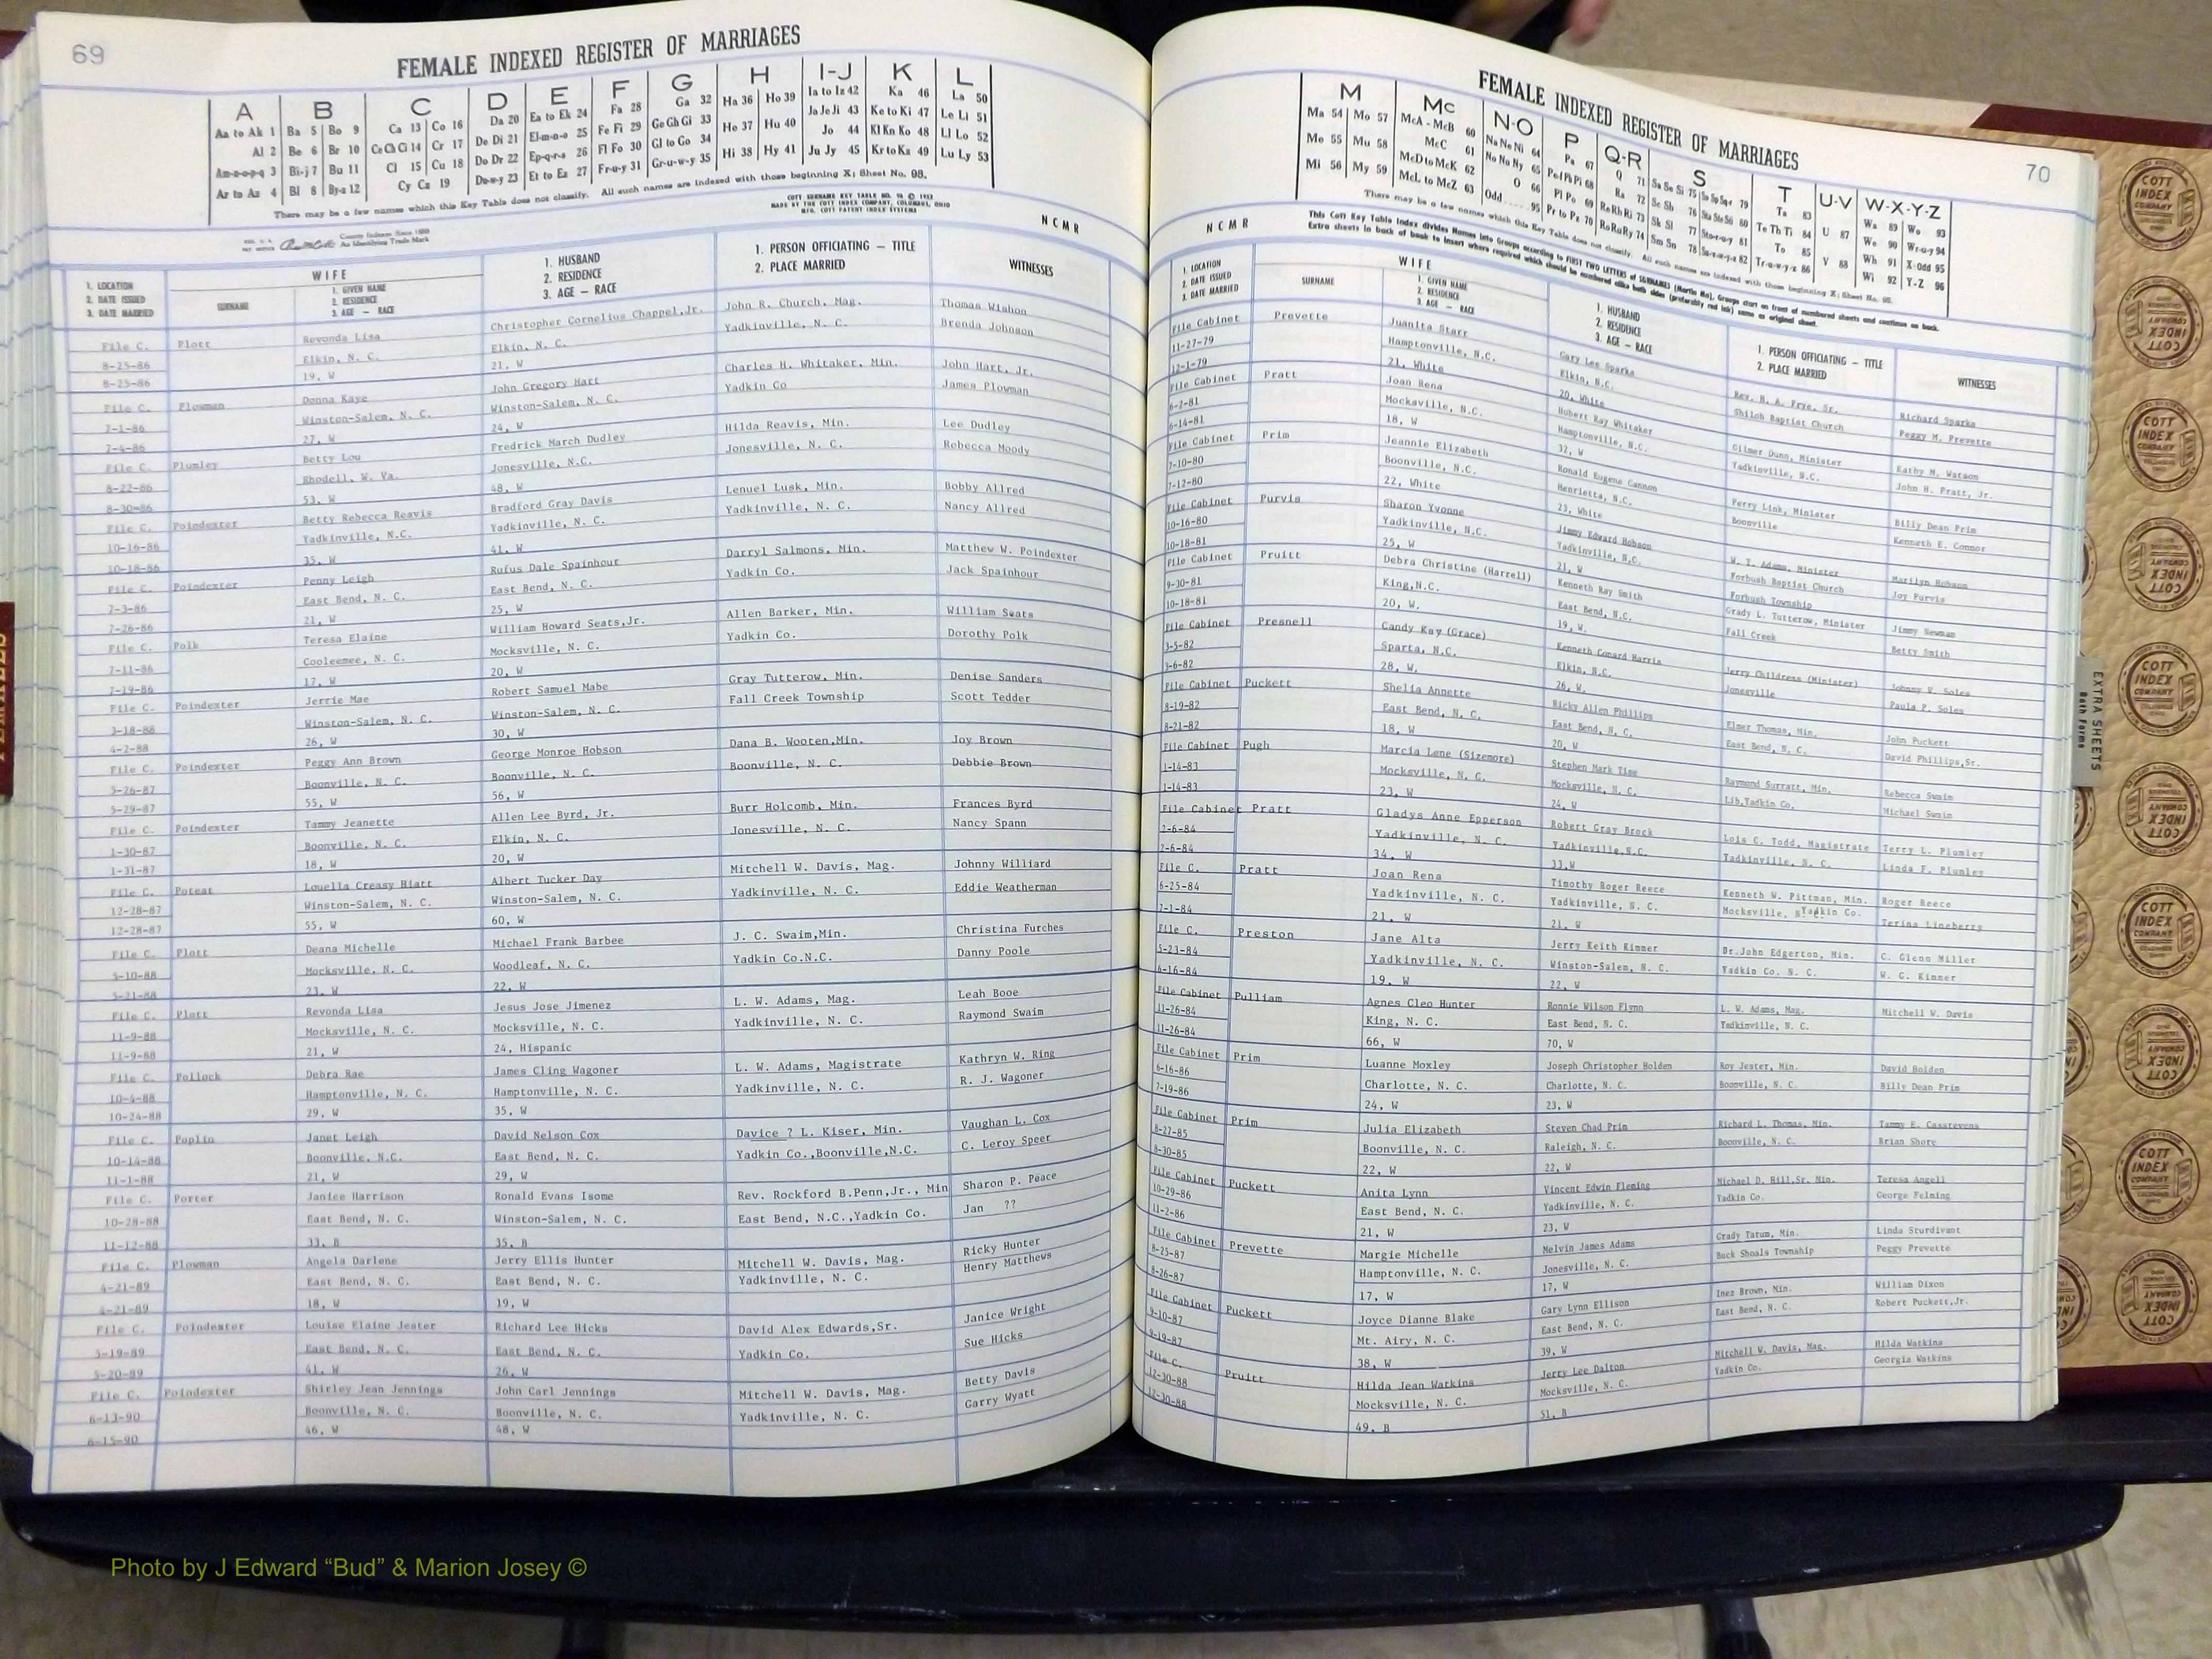 69
FEMALE INDEXED REGISTER OF MARRIAGES
A B C D E F G H I-J K L
Aa to Ak 1 Ba 5 Bo 9 Ca 13 Co 16 Da 20 Ea to Ek 24 Fa 28 Ga 32 Ha 36 Ho 39 Ia to Iz 42 Ka 46 La 50
Al 2 Be 6 Br 10 Ce Ch Ci 14 Cr 17 De Di 21 El-m-n-o 25 Fe Fi 29 Ge Gh Gi 33 He 37 Hu 40 Ja Je Ji 43 Ke to Ki 47 Le Li 51
Am-n-o-p-q 3 Bi-j 7 Bu 11 Cl 15 Cu 18 Do Dr 22 Ep-q-r-s 26 Fl Fo 30 Gl to Go 34 Hi 38 Hy 41 Jo 44 Kl Kn Ko 48 Ll Lo 52
Ar to Az 4 Bl 8 By-z 12 Cy Cz 19 Du-w-y 23 Et to Ez 27 Fr-u-y 31 Gr-u-w-y 35 Ju Jy 45 Kr to Kz 49 Lu Ly 53
There may be a few names which this Key Table does not classify. All such names are indexed with those beginning X; Sheet No. 98.
County Indexes Since 1888
An Identifying Trade Mark
MADE BY THE COTT INDEX COMPANY, COLUMBUS, OHIO
N C M R
1. LOCATION
2. DATE ISSUED
3. DATE MARRIED
WIFE
SURNAME
1. GIVEN NAME
2. RESIDENCE
3. AGE — RACE
1. HUSBAND
2. RESIDENCE
3. AGE — RACE
1. PERSON OFFICIATING — TITLE
2. PLACE MARRIED
WITNESSES
File C. Plott Revonda Lisa Christopher Cornelius Chappel,Jr. John R. Church, Mag. Thomas Wishon
8-25-86 Elkin, N. C. Elkin, N. C. Yadkinville, N. C. Brenda Johnson
8-25-86 19, W 21, W
File C. Plowman Donna Kaye John Gregory Hart Charles H. Whitaker, Min. John Hart, Jr.
7-1-86 Winston-Salem, N. C. Winston-Salem, N. C. Yadkin Co James Plowman
7-4-86 27, W 24, W
File C. Plumley Betty Lou Fredrick March Dudley Hilda Reavis, Min. Lee Dudley
8-22-86 Rhodell, W. Va. Jonesville, N.C. Jonesville, N. C. Rebecca Moody
8-30-86 53, W 48, W
File C. Poindexter Betty Rebecca Reavis Bradford Gray Davis Lenuel Lusk, Min. Bobby Allred
10-16-86 Yadkinville, N.C. Yadkinville, N. C. Yadkinville, N. C. Nancy Allred
10-18-86 35, W 41, W
File C. Poindexter Penny Leigh Rufus Dale Spainhour Darryl Salmons, Min. Matthew W. Poindexter
7-3-86 East Bend, N. C. East Bend, N. C. Yadkin Co. Jack Spainhour
7-26-86 21, W 25, W
File C. Polk Teresa Elaine William Howard Seats,Jr. Allen Barker, Min. William Seats
7-11-86 Cooleemee, N. C. Mocksville, N. C. Yadkin Co. Dorothy Polk
7-19-86 17, W 20, W
File C. Poindexter Jerrie Mae Robert Samuel Mabe Gray Tutterow, Min. Denise Sanders
3-18-88 Winston-Salem, N. C. Winston-Salem, N. C. Fall Creek Township Scott Tedder
4-2-88 26, W 30, W
File C. Poindexter Peggy Ann Brown George Monroe Hobson Dana B. Wooten,Min. Joy Brown
5-26-87 Boonville, N. C. Boonville, N. C. Boonville, N. C. Debbie Brown
5-29-87 55, W 56, W
File C. Poindexter Tammy Jeanette Allen Lee Byrd, Jr. Burr Holcomb, Min. Frances Byrd
1-30-87 Boonville, N. C. Elkin, N. C. Jonesville, N. C. Nancy Spann
1-31-87 18, W 20, W
File C. Poteat Louella Creasy Hiatt Albert Tucker Day Mitchell W. Davis, Mag. Johnny Williard
12-28-87 Winston-Salem, N. C. Winston-Salem, N. C. Yadkinville, N. C. Eddie Weatherman
12-28-87 55, W 60, W
File C. Plott Deana Michelle Michael Frank Barbee J. C. Swaim,Min. Christina Furches
5-10-88 Mocksville, N. C. Woodleaf, N. C. Yadkin Co.N.C. Danny Poole
5-21-88 23, W 22, W
File C. Plott Revonda Lisa Jesus Jose Jimenez L. W. Adams, Mag. Leah Booe
11-9-88 Mocksville, N. C. Mocksville, N. C. Yadkinville, N. C. Raymond Swaim
11-9-88 21, W 24, Hispanic
File C. Pollock Debra Rae James Cling Wagoner L. W. Adams, Magistrate Kathryn W. Ring
10-4-88 Hamptonville, N. C. Hamptonville, N. C. Yadkinville, N. C. R. J. Wagoner
10-24-88 29, W 35, W
File C. Poplin Janet Leigh David Nelson Cox Davice ? L. Kiser, Min. Vaughan L. Cox
10-14-88 Boonville, N.C. East Bend, N. C. Yadkin Co.,Boonville,N.C. C. Leroy Speer
11-1-88 21, W 29, W
File C. Porter Janice Harrison Ronald Evans Isome Rev. Rockford B.Penn,Jr., Min Sharon P. Peace
10-28-88 East Bend, N. C. Winston-Salem, N. C. East Bend, N.C.,Yadkin Co. Jan ??
11-12-88 33, B 35, B
File C. Plowman Angela Darlene Jerry Ellis Hunter Mitchell W. Davis, Mag. Ricky Hunter
4-21-89 East Bend, N. C. East Bend, N. C. Yadkinville, N. C. Henry Matthews
4-21-89 18, W 19, W
File C. Poindexter Louise Elaine Jester Richard Lee Hicks David Alex Edwards,Sr. Janice Wright
5-19-89 East Bend, N. C. East Bend, N. C. Yadkin Co. Sue Hicks
5-20-89 41, W 26, W
File C. Poindexter Shirley Jean Jennings John Carl Jennings Mitchell W. Davis, Mag. Betty Davis
6-13-90 Boonville, N. C. Boonville, N. C. Yadkinville, N. C. Garry Wyatt
6-15-90 46, W 48, W
FEMALE INDEXED REGISTER OF MARRIAGES
70
M Mc N-O P Q-R S T U-V W-X-Y-Z
Ma 54 Mo 57 McA - McB 60 Na Ne Ni 64 Pa 67 Q 71 Sa Se Si 75 79 Ta 83 U 87 Wa 89 Wo 93
Me 55 Mu 58 McC 61 No Nu Ny 65 Pe Pf Ph Pi 68 Ra 72 Sc Sh 76 80 Te Th Ti 84 V 88 We 90 Wr-u-y 94
Mi 56 My 59 McD to McK 62 O 66 Pl Po 69 Re Rh Ri 73 Sk Sl 77 81 To 85 Wh 91 X-Odd 95
McL to McZ 63 Odd 95 Pr to Pz 70 Ro Ru Ry 74 Sm Sn 78 82 Tr-u-w-y-z 86 Wi 92 Y-Z 96
There may be a few names which this Key Table does not classify. All such names are indexed with those beginning X; Sheet No. 98.
This Cott Key Table Index divides Names into Groups according to FIRST TWO LETTERS of SURNAMES (Martin Ma). Groups start on front of numbered sheets and continue on back.
Extra sheets in back of book to insert where required which should be numbered alike both sides (preferably red ink) same as original sheet.
N C M R
1. LOCATION
2. DATE ISSUED
3. DATE MARRIED
WIFE
SURNAME
1. GIVEN NAME
2. RESIDENCE
3. AGE — RACE
1. HUSBAND
2. RESIDENCE
3. AGE — RACE
1. PERSON OFFICIATING — TITLE
2. PLACE MARRIED
WITNESSES
File Cabinet Prevette Juanita Starr Gary Lee Sparks Rev. H. A. Frye, Sr. Richard Sparks
11-27-79 Hamptonville, N.C. Elkin, N.C. Shiloh Baptist Church Peggy M. Prevette
12-1-79 21, White 20, White
File Cabinet Pratt Joan Rena Hubert Ray Whitaker Gilmer Dunn, Minister Kathy M. Watson
6-2-81 Mocksville, N.C. Hamptonville, N.C. Yadkinville, N.C. John H. Pratt, Jr.
6-14-81 18, W 32, W
File Cabinet Prim Jeannie Elizabeth Ronald Eugene Cannon Perry Link, Minister Billy Dean Prim
7-10-80 Boonville, N.C. Henrietta, N.C. Boonville Kenneth E. Connor
7-12-80 22, White 23, White
File Cabinet Purvis Sharon Yvonne Jimmy Edward Hobson W. T. Adams, Minister Marilyn Hobson
10-16-80 Yadkinville, N.C. Yadkinville, N.C. Forbush Baptist Church Joy Purvis
10-18-81 25, W 21, W Forbush Township
File Cabinet Pruitt Debra Christine (Harrell) Kenneth Ray Smith Grady L. Tutterow, Minister Jimmy Newman
9-30-81 King,N.C. East Bend, N.C. Fall Creek Betty Smith
10-18-81 20, W. 19, W.
File Cabinet Presnell Candy Kay (Grace) Kenneth Conard Harris Jerry Childress (Minister) Johnny V. Soles
3-5-82 Sparta, N.C. Elkin, N.C. Jonesville Paula P. Soles
3-6-82 28, W. 26, W.
File Cabinet Puckett Shelia Annette Ricky Allen Phillips Elmer Thomas, Min. John Puckett
8-19-82 East Bend, N. C. East Bend, N. C. East Bend, N. C. David Phillips,Sr.
8-21-82 18, W 20, W
File Cabinet Pugh Marcia Lene (Sizemore) Stephen Mark Tise Raymond Surratt, Min. Rebecca Swaim
1-14-83 Mocksville, N. C. Mocksville, N. C. Lib,Yadkin Co. Michael Swaim
1-14-83 23, W 24, W
File Cabinet Pratt Gladys Anne Epperson Robert Gray Brock Lois C. Todd, Magistrate Terry L. Plumley
2-6-84 Yadkinville, N. C. Yadkinville,N.C. Yadkinville, N. C. Linda F. Plumley
2-6-84 34, W 33,W
File C. Pratt Joan Rena Timothy Roger Reece Kenneth W. Pittman, Min. Roger Reece
6-25-84 Yadkinville, N. C. Yadkinville, N. C. Mocksville, Yadkin Co. Terina Lineberry
7-1-84 21, W 21, W
File C. Preston Jane Alta Jerry Keith Kimmer Dr.John Edgerton, Min. C. Glenn Miller
5-23-84 Yadkinville, N. C. Winston-Salem, N. C. Yadkin Co. N. C. W. C. Kimmer
6-16-84 19, W 22, W
File Cabinet Pulliam Agnes Cleo Hunter Ronnie Wilson Flynn L. W. Adams, Mag. Mitchell W. Davis
11-26-84 King, N. C. East Bend, N. C. Yadkinville, N. C.
11-26-84 66, W 70, W
File Cabinet Prim Luanne Moxley Joseph Christopher Holden Roy Jester, Min. David Bolden
6-16-86 Charlotte, N. C. Charlotte, N. C. Boonville, N. C. Billy Dean Prim
7-19-86 24, W 23, W
File Cabinet Prim Julia Elizabeth Steven Chad Prim Richard L. Thomas, Min. Tammy E. Casstevens
8-27-85 Boonville, N. C. Raleigh, N. C. Boonville, N. C. Brian Shore
8-30-85 22, W 22, W
File Cabinet Puckett Anita Lynn Vincent Edwin Fleming Michael D. Hill,Sr. Min. Teresa Angell
10-29-86 East Bend, N. C. Yadkinville, N. C. Yadkin Co. George Felming
11-2-86 21, W 23, W
File Cabinet Prevette Margie Michelle Melvin James Adams Grady Tatum, Min. Linda Sturdivant
8-25-87 Hamptonville, N. C. Jonesville, N. C. Buck Shoals Township Peggy Prevette
8-26-87 17, W 17, W
File Cabinet Puckett Joyce Dianne Blake Gary Lynn Ellison Inez Brown, Min. William Dixon
9-10-87 Mt. Airy, N. C. East Bend, N. C. East Bend, N. C. Robert Puckett,Jr.
9-19-87 38, W 39, W
File C. Pruitt Hilda Jean Watkins Jerry Lee Dalton Mitchell W. Davis, Mag. Hilda Watkins
12-30-88 Mocksville, N. C. Mocksville, N. C. Yadkin Co. Georgia Watkins
12-30-88 49, B 51, B
EXTRA SHEETS
Both Forms
COTT INDEX COMPANY
Photo by J Edward “Bud” & Marion Josey ©